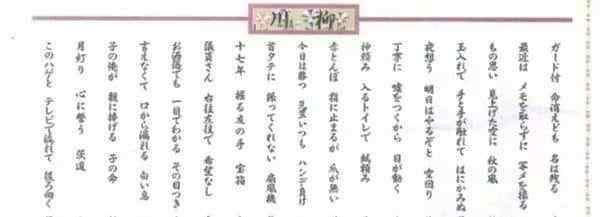 川柳
ガード付 命消えども 名は残る
最近は メモを取らずに 写メを撮る
もの思い 見上げた空に 秋の風
玉入れで 手と手が触れて はにかみぬ
夜想う 明日はやるぞと 空回り
丁寧に 嘘をつくから 目が動く
神頼み 入るトイレで 紙頼み
赤とんぼ 指に止まるが 爪が無い
今日は勝つ 見栄いつも ハンデ負け
首タテに 振ってくれない 扇風機
十七年 握る友の手 宝箱
議員さん 右往左往で 希望なし
お洒落でも 一目でわかる その目つき
言えなくて 口から漏れる 匂い息
子の為が 親に捧げる 子の命
月灯り 心に誓う 償道
このハゲと テレビで流れて 後ろ向く